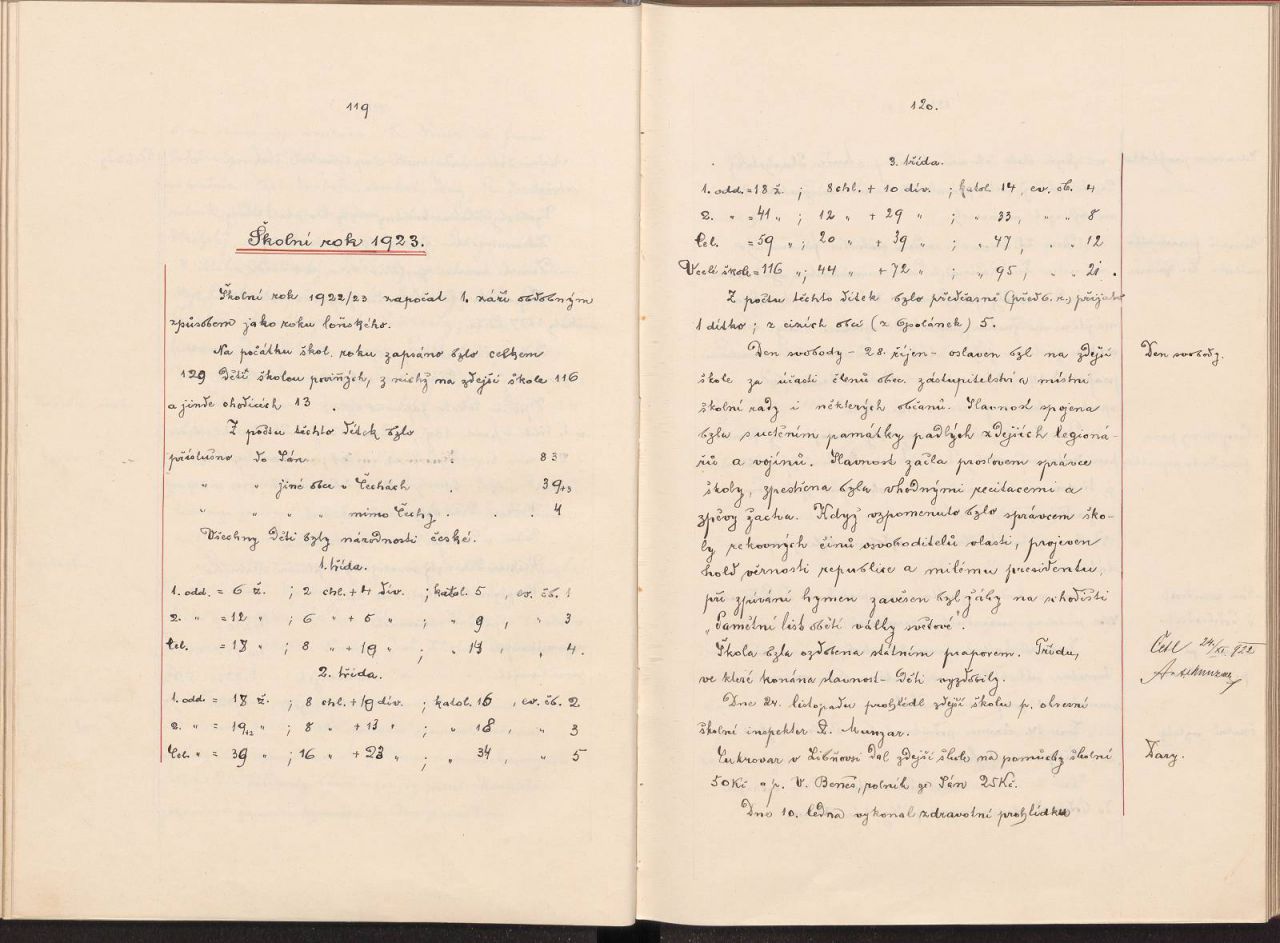 119
Školní rok 1923.
Školní rok 1922/23 započat 1. září obdobným
způsobem jako roku loňského.
Na počátku škol. roku zapsáno bylo celkem
129 dětí školou poviňých, z nichž na zdejší škole 116
a jinde chodících 13.
Z počtu těchto dítek bylo
příslušno do Sán 83
" " jiné obce v Čechách . 39
" " " " mimo Čechy . 4
Všechny děti byly národnosti české.
1. třída.
1. odd. = 6 ž. ; 2 chl. + 4 dív. ; katol. 5 , ev. čb. 1
2. " = 12 " ; 6 " + 6 " ; " 9 , " 3
Cel. = 18 " ; 8 " + 10 " ; " 14 , " 4.
2. třída.
1. odd. = 18 ž. ; 8 chl. + 10 dív. ; katol. 16 , ev. čb. 2
2. " = " ; 8 " + 13 " ; " 18 , " 3
Cel. " = 39 " ; 16 " + 23 " ; " 34 , " 5
120.
3. třída.
1. odd. = 18 ž. ; 8 chl. + 10 dív. ; katol. 14, ev. čb. 4
2. " = 41 " ; 12 " + 29 " ; " 33, " " 8
Cel. = 59 " ; 20 " + 39 " ; " 47, . . 12
V celé škole = 116 " ; 44 " + 72 " ; " 95, . . 21.
Z počtu těchto dítek bylo předčasně (předb. r.) přijato
1 dítko ; z cizích obcí (z Opolánek) 5.
Den svobody - 28. říjen - oslaven byl na zdejší
škole za účasti členů obec. zástupitelství a místní
školní rady i některých občanů. Slavnosť spojena
byla s uctěním památky padlých zdejších legioná-
řů a vojínů. Slavnosť začla proslovem správce
školy, zpestřena byla vhodnými recitacemi a
zpěvy žactva. Když vzpomenuto bylo správcem ško-
ly rekovných činů osvoboditelů vlasti, projeven
hold věrnosti republice a milému presidentu,
při zpívání hymen zavěšen byl žáky na schodišti
„Pamětní list obětí války světové".
Škola byla ozdobena státním praporem. Třídu,
ve které konána slavnost - děti vyzdobily.
Dne 24. listopadu prohlédl zdejší školu p. okresní
školní inspektor D. Munzar.
Cukrovar v Libňovsi dal zdejší škole na pomůcky školní
50 Kč a p. V. Beneš, rolník ze Sán 25 Kč.
Dne 10. ledna vykonal zdravotní prohlídku
Den svobody.
Četl 24/XI 922
Dary.